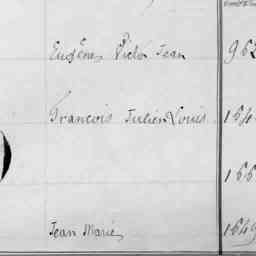 Eugène Victor Jean 962
François Julien Louis 164
166
Jean Marie 1649